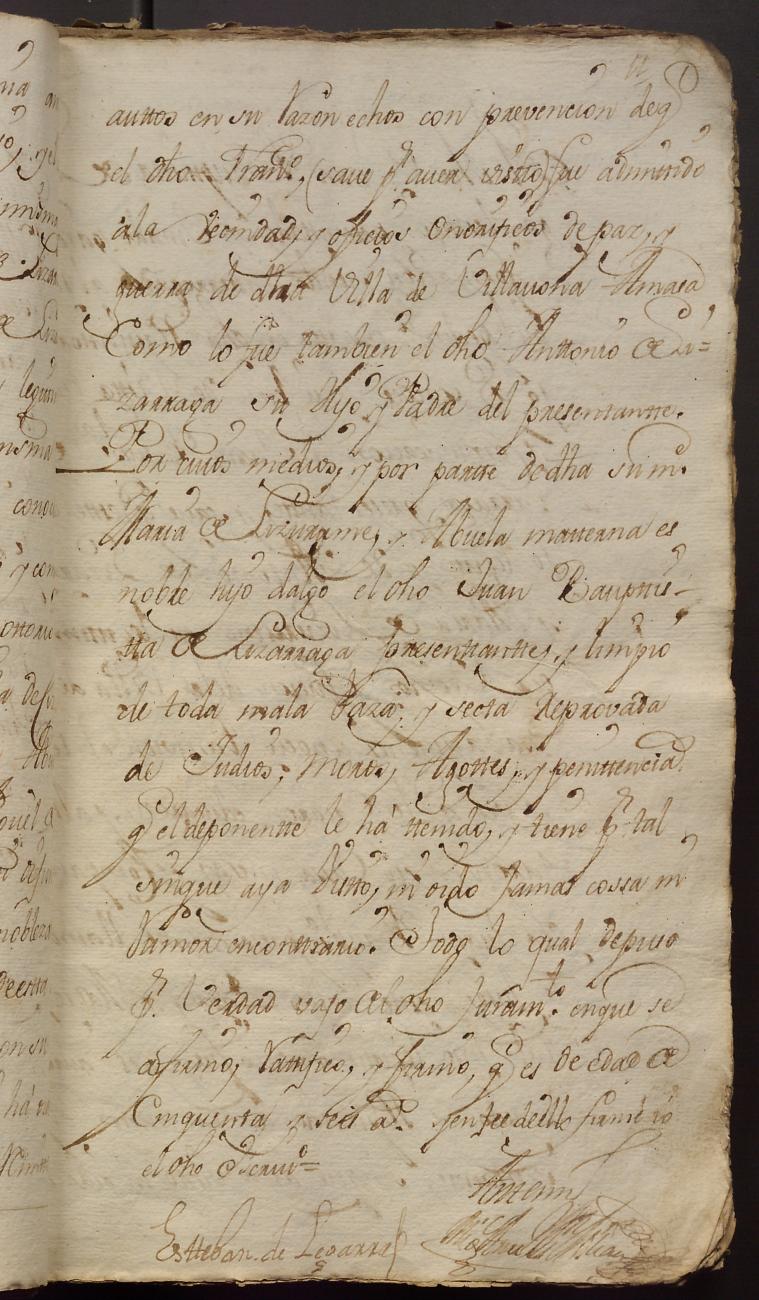 auttos en su Razon echos con prevencion deq̃
el dho Fran.co, (save pr aver visto) fue admitido
âla Vecindad, y oficios onorificos de paz, y
guerra de dha Villa de Villavona Amasa
Como lo fue tambien el dho Anttonio de Li=
zarraga su Hijo, y Padre del presentantte.
Por cuios medios, y por partte de dha su m.e
Maria de, y Abuela matterna es
noble hijo dalgo el dho Juan Bauptis-
tta de Lizarraga presentantte, y limpio
de toda mala Raza, y secta Reprovada
de Judios, Moros, Agottes, y penittenciad.s
q̃ el deponentte le há ttenido, y tiene pr tal
sinque aya Vistto, ni oido Jamas cossa ni
Rumor encontrario. Todo lo qual depuso
pr. Verdad vajo del dho Juram.to enque se
afirmo, Rattifico, y firmo, q̃ es de edad de
Cinquenta y seis a.s y enfee dello firmé io
el dho Escriv.o=
Antemi
Estteban de Legarra